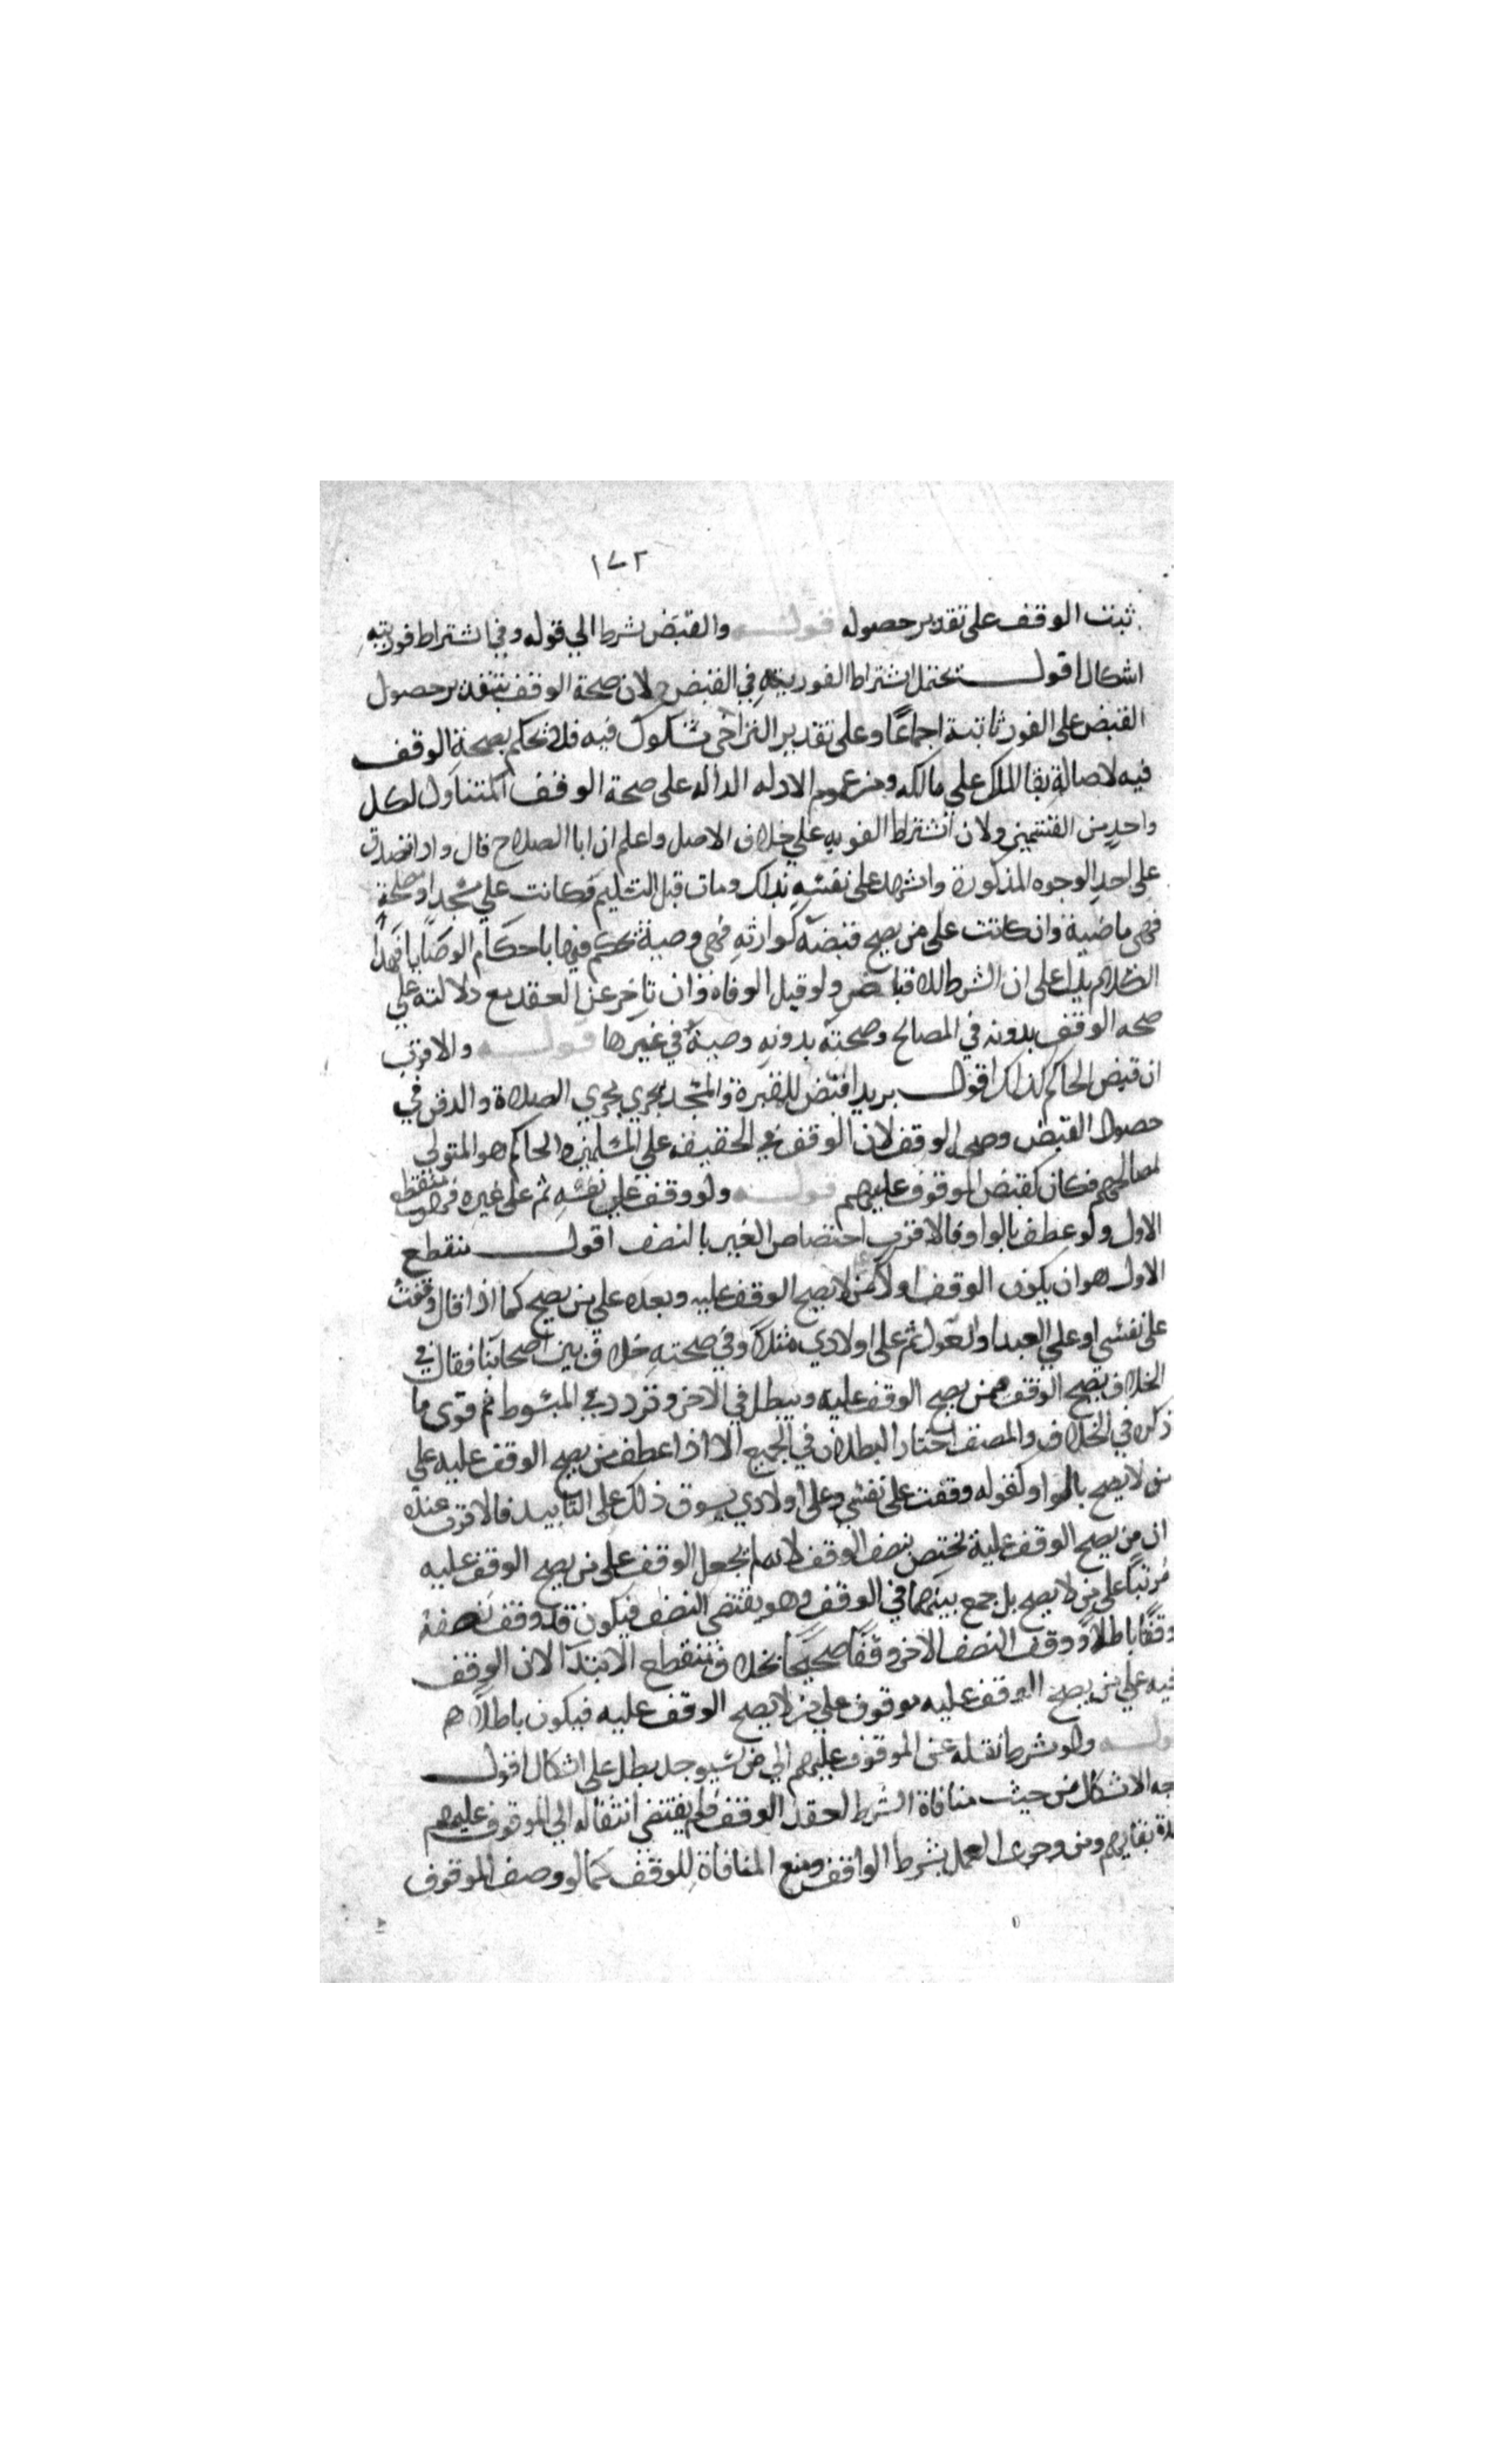 ١٧٢
ثبتت الوقف على تقدير حصوله قوله والقبض شرط الي قوله وفي اشتراط فوريته
اشكال اقول يحتمل اشتراط الفوريه في القبض لان صحة الوقف بتقدير حصول
القبض على الفور ثابتة اجماعًا وعلى تقدير التراخى مشكوك فيه فلا نحكم بصحة الوقف
فيه لاصالة بقا الملك علي مالكه ومن عموم الادله الداله على صحة الوقف المتناول لكل
واحدٍ من القسمين ولان اشتراط الفوريه علي خلاف الاصل واعلم ان ابا الصلاح قال واذا تصدق
على احدِ الوجوه المذكورة واشهد على نفسِه بذلك ومات قبل التسليم فكانت علي مسجد او مصلحة
فهي ماضية وان كانت على من يصح قبضه كوارثهِ فهي وصية نحكم فيها باحكام الوصايا فهذا
الكلام يدل على ان الشرط الاقباض ولو قبل الوفاة وان تاخر عن العقد مع دلالته علي
صحه الوقف بدونه في المصالح وصحته بدونهِ وصيةً في غيرها قوله والاقرب
ان قبض الحاكم كذلك اقول يريد اقبض للمقبرة والمسجد يجري مجري الصلاة والدفن في
حصول القبض وصحه الوقف لان الوقف في الحقيقه علي المسلمين والحاكم هو المتولي
لمصالحهم فكان كقبض الموقوف عليهم قوله ولو وقف علي نفسِه ثم على غيره فهو منقطع
الاول ولو عطف بالواو فالاقرب اختصاص الغير بالنصف اقول منقطع
الاول هو ان يكون الوقف اولا من لا يصح الوقف عليه وبعده علي من يصح كما اذا قال وقفت
على نفسي او علي العبد ثم على اولادي مثلًا وفي صحتهِ خلاف بين اصحابنا فقال في
الخلاف يصح الوقف ممن يصح الوقف عليه ويبطل في الاخر وتردد في المبسوط ثم قوى ما
ذكره في الخلاف والمصنف اختار البطلان في الجميع الا اذا عطف من يصح الوقف عليه علي
من لا يصح بالواو كقوله وقفت على نفسي وعلى اولادي يسوق ذلك على التابيد فالاقرب عنده
ان من يصح الوقف عليه يختص بنصف الوقف لانه لم يجعل الوقف على من يصح الوقف عليه
مُرتبًا على من لا يصح بل جمع بينهما في الوقف وهو يقتضي النصف فيكون قد وقف نصفه
وقفًا باطلًا ووقف النصف الاخر وقفًا صحيحًا بخلاف منقطع الابتدآ لان الوقف
فيه علي من يصح الوقف عليه موقوف على من لا يصح الوقف عليه فيكون باطلًا
وله ولو شرط نقله عن الموقوف عليهم الي من سيوجد بطل على اشكال اقول
جه الاشكال من حيث منافاة الشرط لعقد الوقف فلم يقتضي انتقاله الي الموقوف عليهم
مدة بقايهم ومن وجوب العمل بشرط الواقف ومنع المنافاة للوقف كما لو وصف الموقوف